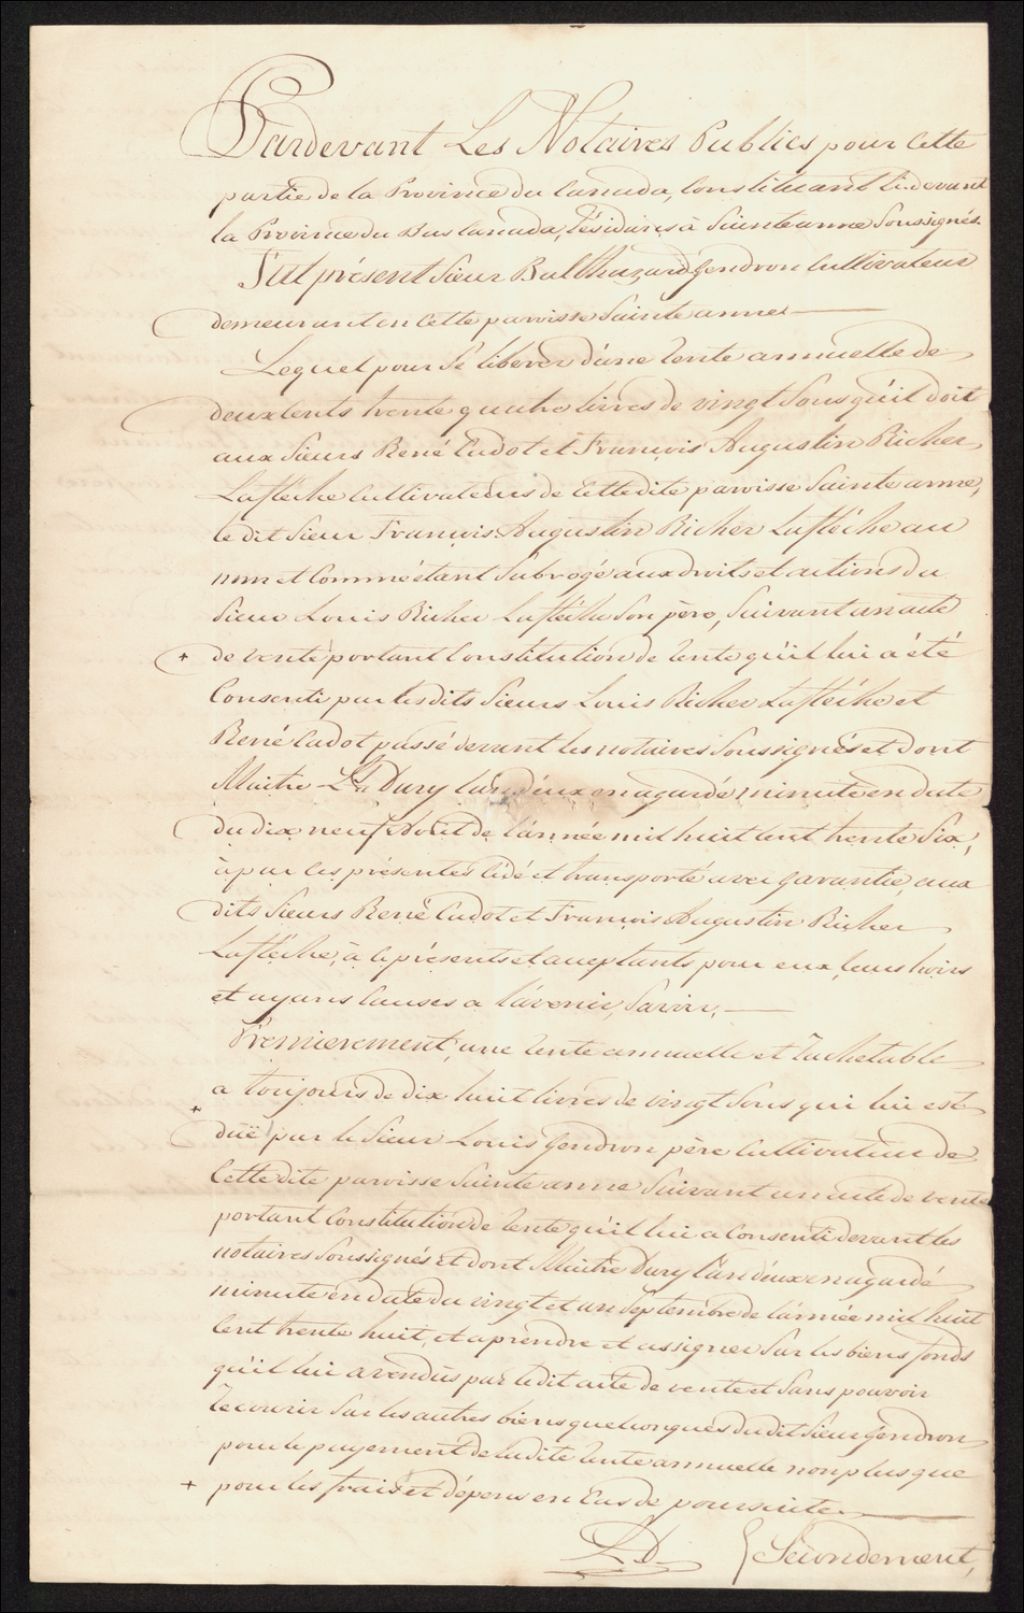 Pardevant Les Notaires Publics pour Cette
partie de la Province du Canada, Constituant ci-devant
la Province du Bas Canada, Résidants à Sainte anne Soussignés.
Fut présent Sieur Balthazard Gendron Cultivateur
demeurant en Cette paroisse Sainte anne
Lequel pour Se libérer d'une Rente annuelle de
deux Cents trente quatre livres de vingt Sous qu'il doit
aux Sieurs René Cadot et François Augustin Richer
Lafléche Cultivateurs de Cette dite paroisse Sainte anne,
le dit Sieur François Augustin Richer Lafléche au
nom et Comme étant Subrogé aux droits et actions du
Sieur Louis Richer Lafléche Son père, Suivant un acte
+ de vente portant Constitution de Rente qu'il lui a été
Consenti par les dits Sieurs Louis Richer Lafléche et
René Cadot passé devant les notaires Soussignés et dont
Maitre Ls Dury l'un d'eux en a gardé minute en date
du dix neuf Août de l'année mil huit Cent trente Six,
a par les présentes Cédé et transporté avec garantie, aux
dits Sieurs René Cadot et François Augustin Richer
Lafléche, à ce présents et acceptants pour eux, leurs hoirs
et ayans Causes a l'avenir, Savoir,
Premierement, une Rente annuelle et Rachetable
a toujours de dix huit livres de vingt Sous qui lui est
+
duë par le Sieur Louis Gendron père Cultivateur de
Cette dite paroisse Sainte anne Suivant un acte de vente
portant Constitution de Rente qu'il lui a Consenti devant les
notaires Soussignés et dont Maitre Dury l'un d'eux en a gardé
minute en date du vingt et un Septembre de l'année mil huit
Cent trente huit, et a prendre et assigner Sur les biens fonds
qu'il lui a vendus par le dit acte de vente et Sans pouvoir
Recourir Sur les autres biens quelconques du dit Sieur Gendron
pour le payement de la dite Rente annuelle non plus que
+ pour les frais et dépens en Cas de poursuite.
L D. Secondement,